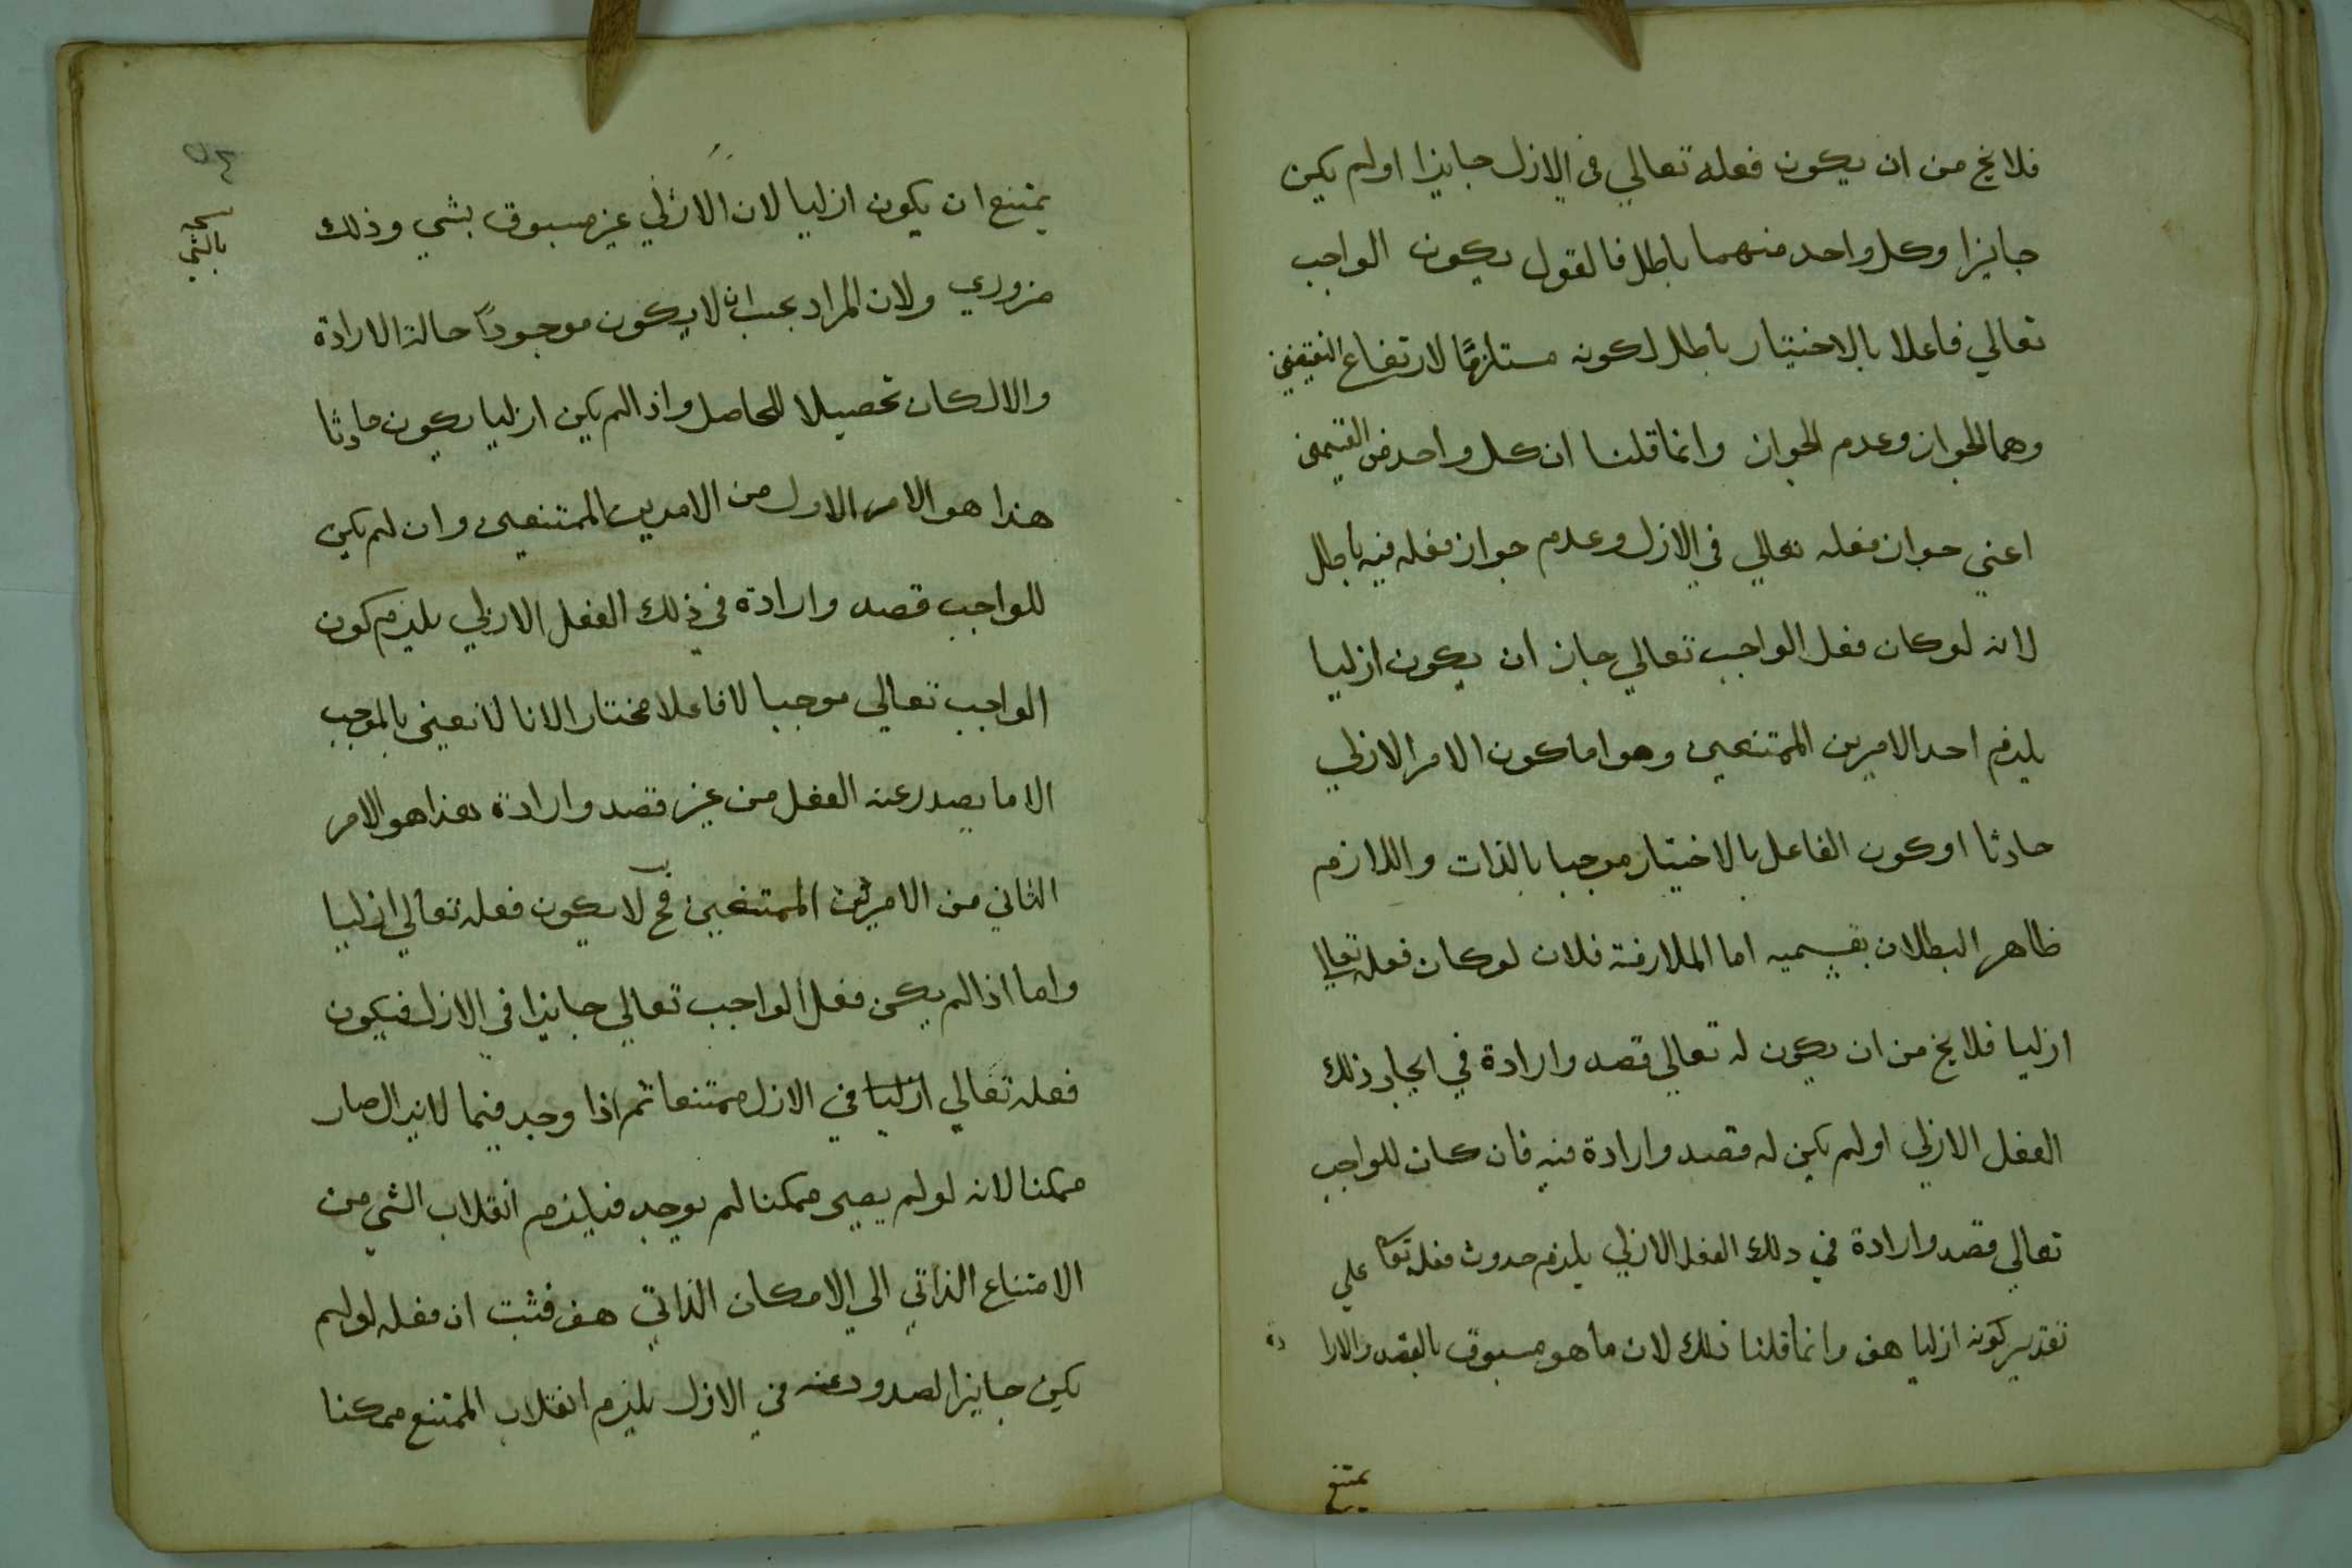 فلا يخ من ان يكون فعله تعالي في الازل جايزا او لم يكن
جايزا وكل واحد منهما باطل فالقول بكون الواجب
تعالي فاعلا بالاختيار باطل لكونه مستلزمًا لارتفاع النقيضين
وهما الجواز وعدم الجواز وانما قلنا ان كل واحد من القسمين
اعني جواز فعله تعالي في الازل وعدم جواز فعله فيه باطل
لانه لو كان فعل الواجب تعالي جاز ان يكون ازليا
يلزم احد الامرين الممتنعين وهو اما كون الامر الازلي
حادثا او كون الفاعل بالاختيار موجبا بالذات واللازم
ظاهر البطلان بقسميه اما الملازمة فلان لو كان فعله تعالي
ازليا فلا يخ من ان يكون له تعالي قصد وارادة في ايجاد ذلك
الفعل الازلي او لم يكن له قصد وارادة فيه فان كان للواجب
تعالي قصد وارادة في ذلك الفعل الازلي يلزم حدوث فعله تعا علي
تقدير كونه ازليا هف وانما قلنا ذلك لان ما هو مسبوق بالقصد والارا دة
يمتنع
يمتنع ان يكون ازليا لان الازلي غير مسبوق بشي وذلك
نسخه
بالشي
ضروري ولان المراد يجب ان لا يكون موجوداً حالة الارادة
والا لكان تحصيلا للحاصل واذا لم يكن ازليا يكون حادثا
هذا هو الامر الاول من الامرين الممتنعين وان لم يكن
للواجب قصد وارادة في ذلك الفعل الازلي يلزم كون
الواجب تعالي موجبا لا فاعلا مختارا لانا لا نعني بالموجب
الا ما يصدر عنه الفعل من غير قصد وارادة هذا هو الامر
الثاني من الامرين الممتنعين فح لا يكون فعله تعالي ازليا
واما اذا لم يكن فعل الواجب تعالي جايزا في الازل فيكون
فعله تعالي ازليا في الازل ممتنعا ثم اذا وجد فيما لا يزال صار
ممكنا لانه لو لم يصر ممكنا لم يوجد فيلزم انقلاب الشي من
الامتناع الذاتي الي الامكان الذاتي هف فثبت ان فعله لو لم
يكن جايزا لصدور عنه في الازل يلزم انقلاب الممتنع ممكنا